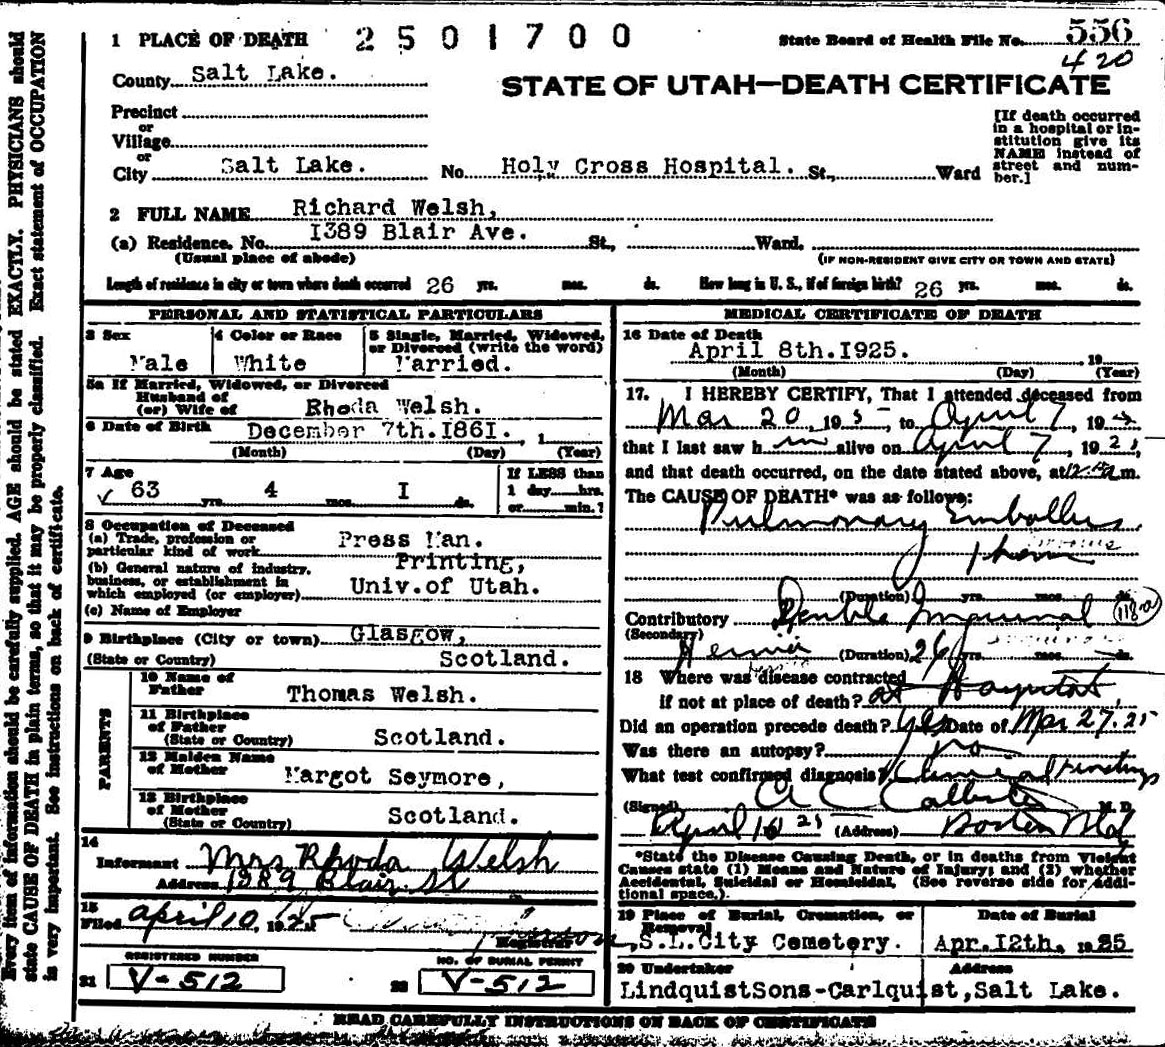 1 PLACE OF DEATH 2501700 State Board of Health File No. 556
420
County Salt Lake.
STATE OF UTAH—DEATH CERTIFICATE
Precinct
or
Village
or
City Salt Lake. No. Holy Cross Hospital. St., Ward
[If death occurred
in a hospital or in-
stitution give its
NAME instead of
street and num-
ber.]
2 FULL NAME Richard Welsh,
(a) Residence. No. I389 Blair Ave. St., Ward.
(Usual place of abode) (IF NON-RESIDENT GIVE CITY OR TOWN AND STATE)
Length of residence in city or town where death occurred 26 yrs. mos. ds. How long in U. S., if of foreign birth? 26 yrs. mos. ds.
PERSONAL AND STATISTICAL PARTICULARS
3 Sex 4 Color or Race 5 Single, Married, Widowed,
or Divorced (write the word)
Male White Married.
5a If Married, Widowed, or Divorced
Husband of
(or) Wife of Rhoda Welsh.
6 Date of Birth December 7th.I86I. , 1
(Month) (Day) (Year)
7 Age If LESS than
63 yrs. 4 mos. I ds. 1 day,....hrs.
or....min.?
8 Occupation of Deceased
(a) Trade, profession or
particular kind of work Press Man.
(b) General nature of industry, Printing,
business, or establishment in
which employed (or employer) Univ.of Utah.
(c) Name of Employer
9 Birthplace (City or town) Glasgow,
(State or Country) Scotland.
PARENTS
10 Name of
Father Thomas Welsh.
11 Birthplace
of Father
(State or Country) Scotland.
12 Maiden Name
of Mother Margot Seymore,
13 Birthplace
of Mother
(State or Country) Scotland.
14
Informant Mrs Rhoda Welsh
Address 1389 Blair St
15
Filed April 10, 1925
Registrar
REGISTERED NUMBER NO. OF BURIAL PERMIT
21 V-512 22 V-512
MEDICAL CERTIFICATE OF DEATH
16 Date of Death
April 8th.I925. 19
(Month) (Day) (Year)
17. I HEREBY CERTIFY, That I attended deceased from
Mar 20, 19 5, to April 7, 19
that I last saw him alive on April 7, 192
and that death occurred, on the date stated above, at m.
The CAUSE OF DEATH* was as follows:
Pulmonary Embollus
(Duration) yrs. mos. ds.
Contributory Double Inguinal
(Secondary)
Hernia (Duration) 26 yrs. mos. ds.
18 Where was disease contracted
if not at place of death? at Hospital
Did an operation precede death? yes Date of Mar 27.25
Was there an autopsy? no
What test confirmed diagnosis? Clinical findings
(Signed) A C Callister M. D.
April 10 25 (Address) Boston Bld
*State the Disease Causing Death, or in deaths from Violent
Causes state (1) Means and Nature of Injury; and (2) whether
Accidental, Suicidal or Homicidal, (See reverse side for addi-
tional space.)
19 Place of Burial, Cremation, or
Removal Date of Burial
S.L.City Cemetery. Apr.I2th. 1925
20 Undertaker Address
LindquistSons-Carlquist,Salt Lake.
READ CAREFULLY INSTRUCTIONS ON BACK OF CERTIFICATE
Every item of information should be carefully supplied. AGE should be stated EXACTLY. PHYSICIANS should
state CAUSE OF DEATH in plain terms, so that it may be properly classified. Exact statement of OCCUPATION
is very important. See instructions on back of certificate.